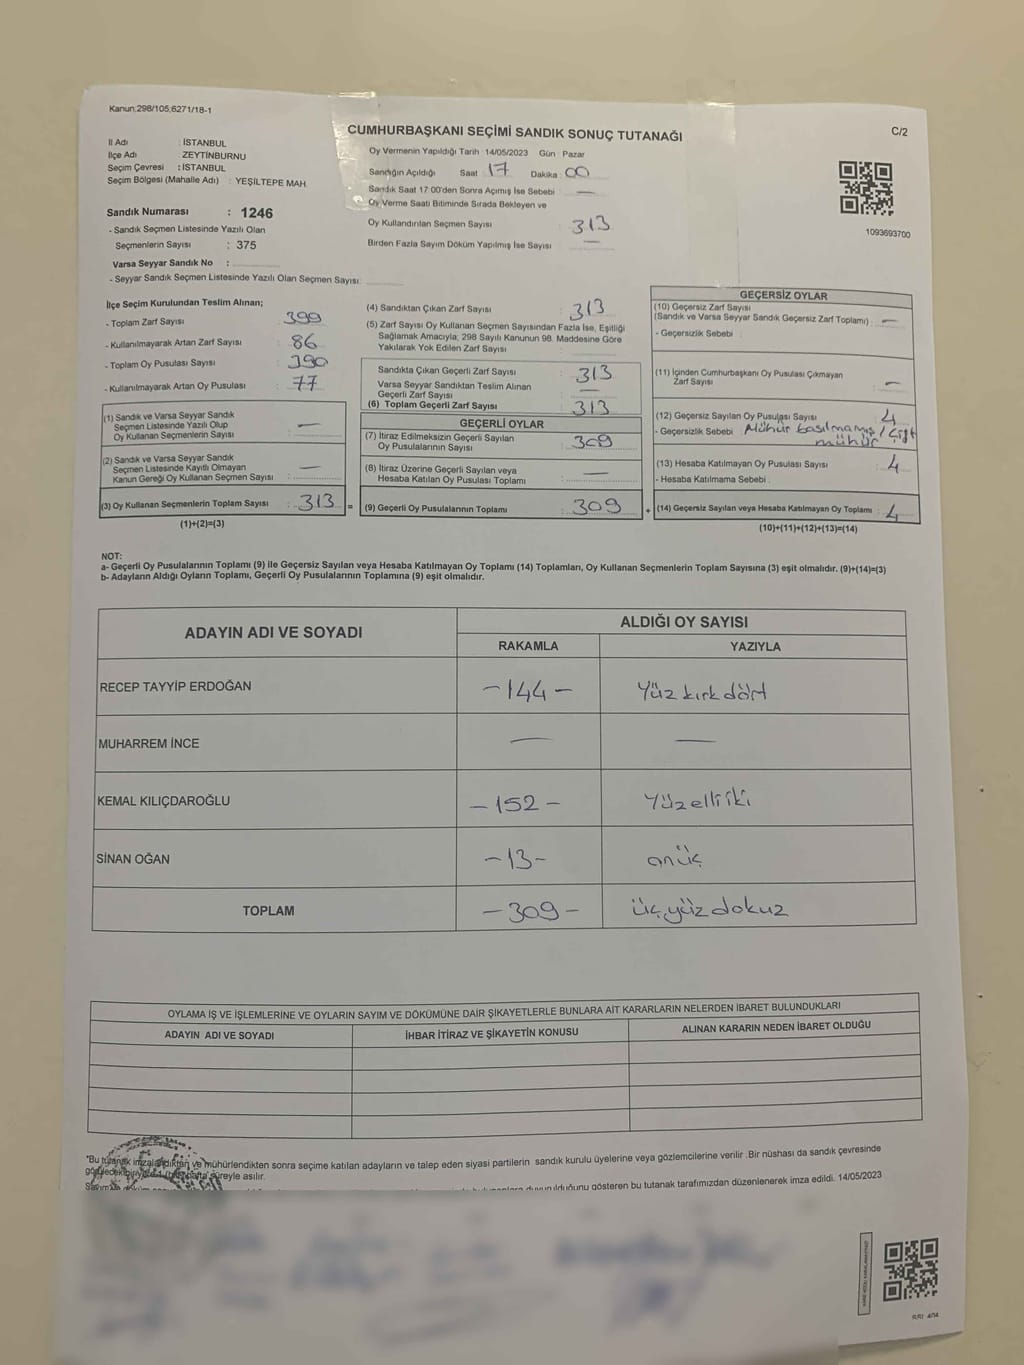 Kanun:298/105,6271/18-1
CUMHURBAŞKANI SEÇİMİ SANDIK SONUÇ TUTANAĞI
C/2
İl Adı : İSTANBUL
İlçe Adı : ZEYTİNBURNU
Seçim Çevresi : İSTANBUL
Seçim Bölgesi (Mahalle Adı) : YEŞİLTEPE MAH.
Sandık Numarası : 1246
- Sandık Seçmen Listesinde Yazılı Olan
Seçmenlerin Sayısı : 375
Varsa Seyyar Sandık No :
- Seyyar Sandık Seçmen Listesinde Yazılı Olan Seçmen Sayısı:
Oy Vermenin Yapıldığı Tarih 14/05/2023 Gün : Pazar
Sandığın Açıldığı Saat 17 Dakika : 00
Sandık Saat 17:00'den Sonra Açımış İse Sebebi —
Oy Verme Saati Bitiminde Sırada Bekleyen ve
Oy Kullandırılan Seçmen Sayısı : 313
Birden Fazla Sayım Döküm Yapılmış İse Sayısı : —
1093693700
İlçe Seçim Kurulundan Teslim Alınan;
- Toplam Zarf Sayısı : 399
- Kullanılmayarak Artan Zarf Sayısı : 86
- Toplam Oy Pusulası Sayısı : 390
- Kullanılmayarak Artan Oy Pusulası : 77
(1) Sandık ve Varsa Seyyar Sandık
Seçmen Listesinde Yazılı Olup
Oy Kullanan Seçmenlerin Sayısı : —
(2) Sandık ve Varsa Seyyar Sandık
Seçmen Listesinde Kayıtlı Olmayan
Kanun Gereği Oy Kullanan Seçmen Sayısı : —
(3) Oy Kullanan Seçmenlerin Toplam Sayısı : 313 =
(1)+(2)=(3)
(4) Sandıktan Çıkan Zarf Sayısı : 313
(5) Zarf Sayısı Oy Kullanan Seçmen Sayısından Fazla İse, Eşitliği
Sağlamak Amacıyla; 298 Sayılı Kanunun 98. Maddesine Göre
Yakılarak Yok Edilen Zarf Sayısı :
Sandıkta Çıkan Geçerli Zarf Sayısı : 313
Varsa Seyyar Sandıktan Teslim Alınan
Geçerli Zarf Sayısı : —
(6) Toplam Geçerli Zarf Sayısı : 313
GEÇERLİ OYLAR
(7) İtiraz Edilmeksizin Geçerli Sayılan
Oy Pusulalarının Sayısı : 309
(8) İtiraz Üzerine Geçerli Sayılan veya
Hesaba Katılan Oy Pusulası Toplamı : —
(9) Geçerli Oy Pusulalarının Toplamı : 309 +
GEÇERSİZ OYLAR
(10) Geçersiz Zarf Sayısı
(Sandık ve Varsa Seyyar Sandık Geçersiz Zarf Toplamı) : —
- Geçersizlik Sebebi :
(11) İçinden Cumhurbaşkanı Oy Pusulası Çıkmayan
Zarf Sayısı : —
(12) Geçersiz Sayılan Oy Pusulası Sayısı : 4
- Geçersizlik Sebebi : Mühür basılmamış / Çift
mühür
(13) Hesaba Katılmayan Oy Pusulası Sayısı : 4
- Hesaba Katılmama Sebebi :
(14) Geçersiz Sayılan veya Hesaba Katılmayan Oy Toplamı : 4
(10)+(11)+(12)+(13)=(14)
NOT:
a- Geçerli Oy Pusulalarının Toplamı (9) ile Geçersiz Sayılan veya Hesaba Katılmayan Oy Toplamı (14) Toplamları, Oy Kullanan Seçmenlerin Toplam Sayısına (3) eşit olmalıdır. (9)+(14)=(3)
b- Adayların Aldığı Oyların Toplamı, Geçerli Oy Pusulalarının Toplamına (9) eşit olmalıdır.
ADAYIN ADI VE SOYADI ALDIĞI OY SAYISI
RAKAMLA YAZIYLA
RECEP TAYYİP ERDOĞAN -144- Yüz kırk dört
MUHARREM İNCE — —
KEMAL KILIÇDAROĞLU -152- Yüz elli iki
SİNAN OĞAN -13- on üç
TOPLAM -309- üç yüz dokuz
OYLAMA İŞ VE İŞLEMLERİNE VE OYLARIN SAYIM VE DÖKÜMÜNE DAİR ŞİKAYETLERLE BUNLARA AİT KARARLARIN NELERDEN İBARET BULUNDUKLARI
ADAYIN ADI VE SOYADI İHBAR İTİRAZ VE ŞİKAYETİN KONUSU ALINAN KARARIN NEDEN İBARET OLDUĞU
*Bu tutanak imzalandıktan ve mühürlendikten sonra seçime katılan adayların ve talep eden siyasi partilerin sandık kurulu üyelerine veya gözlemcilerine verilir .Bir nüshası da sandık çevresinde
süreyle asılır.
duyurulduğunu gösteren bu tutanak tarafımızdan düzenlenerek imza edildi. 14/05/2023